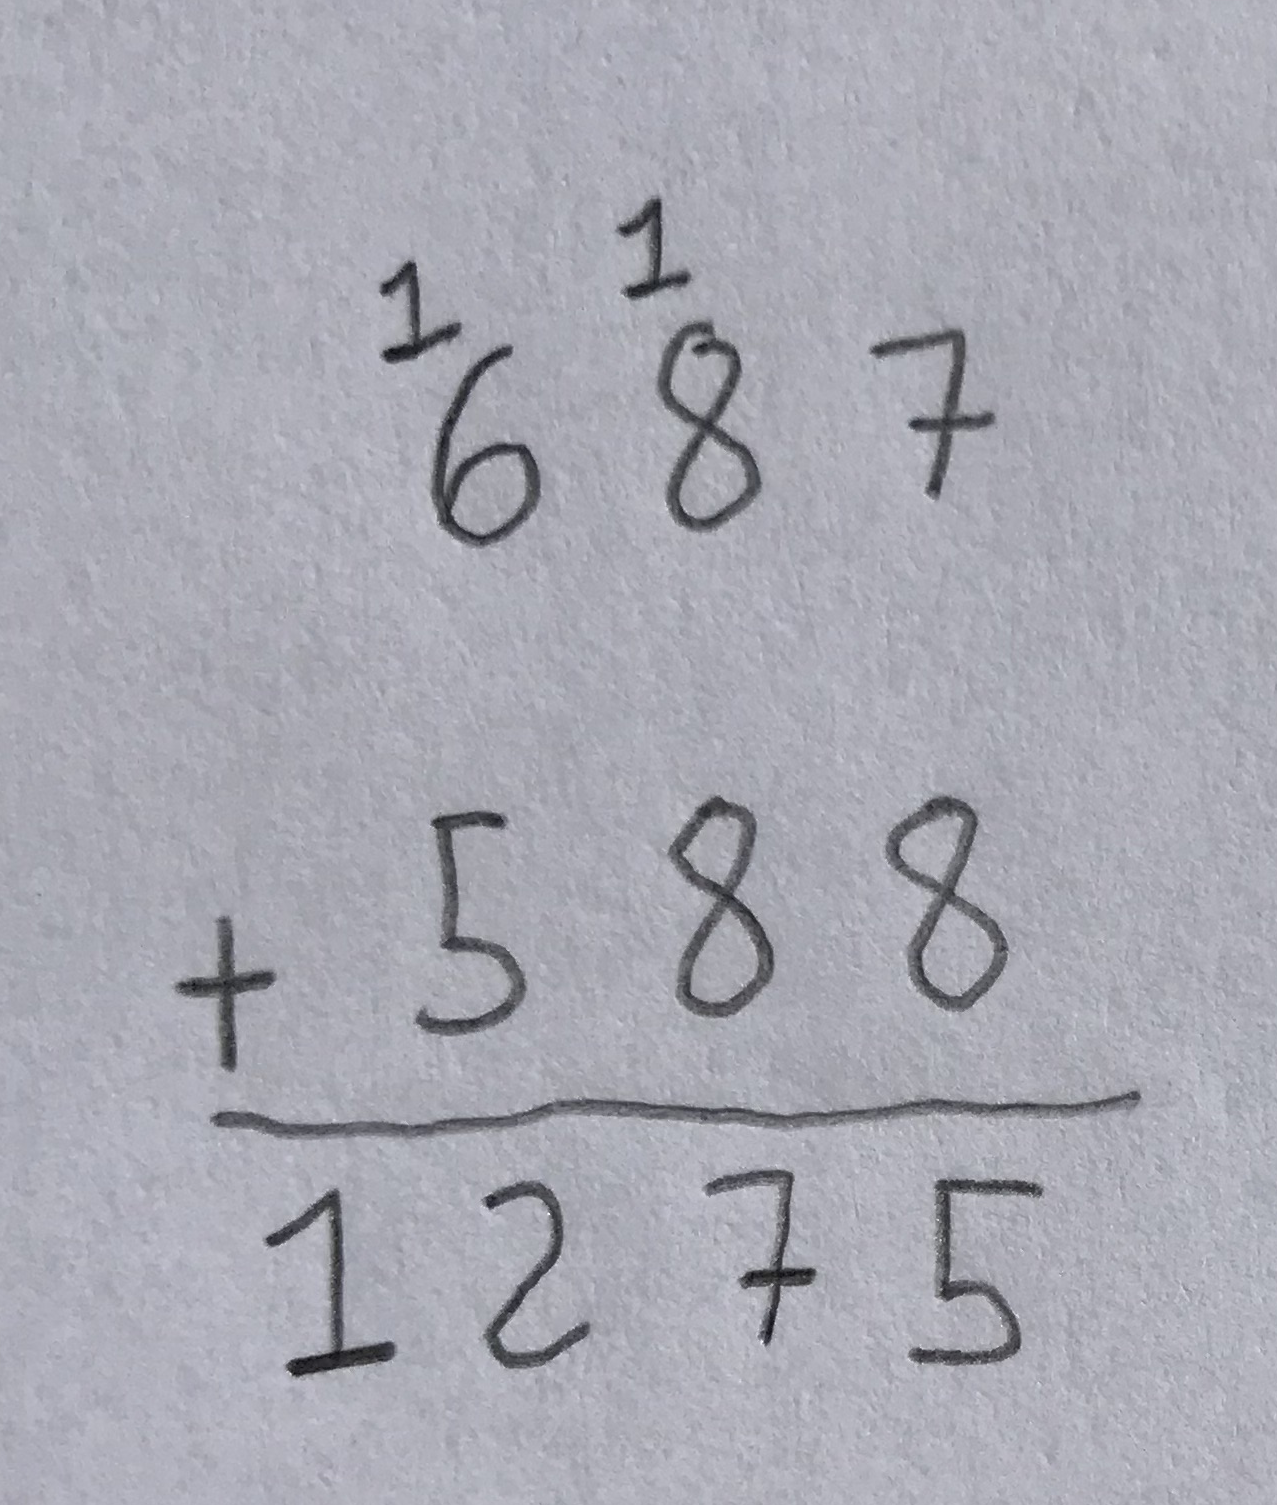 1 1
687
+ 588
1275